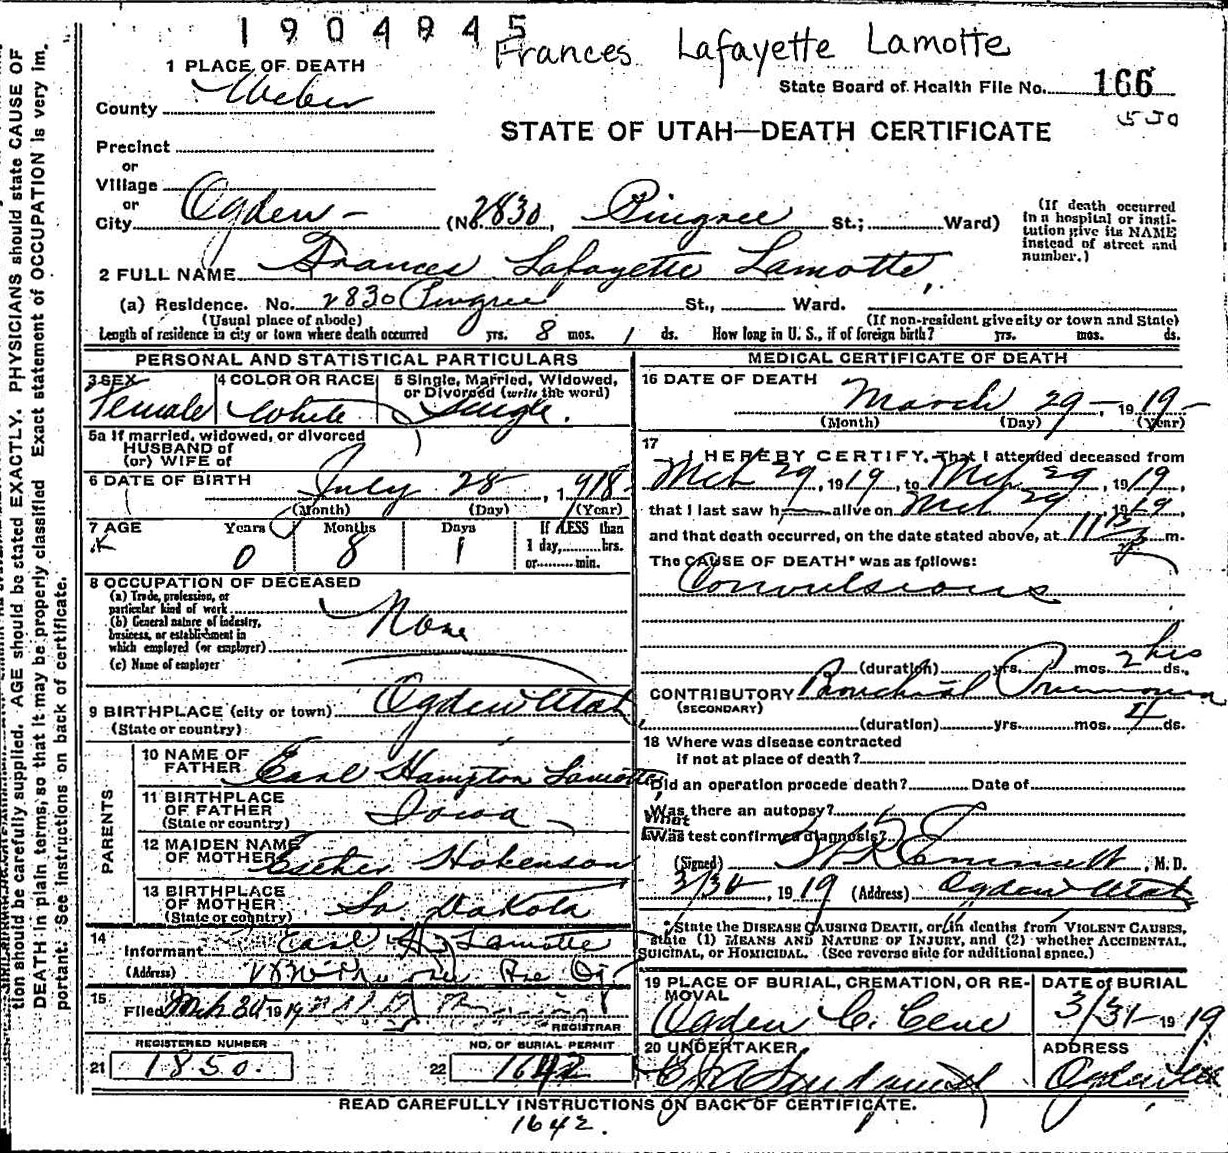 1904845
Frances Lafayette Lamotte
1 PLACE OF DEATH
State Board of Health File No. 166
550
County Weber
STATE OF UTAH—DEATH CERTIFICATE
Precinct
or
Village
or
City Ogden - (No. 2830, Pingree St.; Ward)
(If death occurred in a hospital or institution give its NAME instead of street and number.)
2 FULL NAME Frances Lafayette Lamotte,
(a) Residence. No. 2830 Pingree St., Ward.
(Usual place of abode) (If non-resident give city or town and State)
Length of residence in city or town where death occurred yrs. 8 mos. 1 ds. How long in U. S., if of foreign birth? yrs. mos. ds.
PERSONAL AND STATISTICAL PARTICULARS
3 SEX Female
4 COLOR OR RACE White
5 Single, Married, Widowed, or Divorced (write the word) Single.
5a If married, widowed, or divorced
HUSBAND of
(or) WIFE of
6 DATE OF BIRTH July 28, 1918
(Month) (Day) (Year)
7 AGE Years 0 Months 8 Days 1 If LESS than 1 day, hrs. or min.
8 OCCUPATION OF DECEASED
(a) Trade, profession, or particular kind of work None
(b) General nature of industry, business, or establishment in which employed (or employer)
(c) Name of employer
9 BIRTHPLACE (city or town) Ogden Utah
(State or country)
PARENTS
10 NAME OF FATHER Earl Hampton Lamotte
11 BIRTHPLACE OF FATHER Iowa
(State or country)
12 MAIDEN NAME OF MOTHER Esther Hokenson
13 BIRTHPLACE OF MOTHER So. Dakota
(State or country)
14 Informant Earl H. Lamotte
(Address)
15 Filed Mch 30 1919
REGISTRAR
REGISTERED NUMBER
21 1850.
NO. OF BURIAL PERMIT
22 1642
MEDICAL CERTIFICATE OF DEATH
16 DATE OF DEATH March 29 - 1919
(Month) (Day) (Year)
17 I HEREBY CERTIFY, That I attended deceased from
Mch 29, 1919, to Mch 29, 1919,
that I last saw h alive on Mch 29 1919,
and that death occurred, on the date stated above, at 11 m.
The CAUSE OF DEATH* was as follows:
Convulsions
(duration) yrs. mos. 2 hrs ds.
CONTRIBUTORY Bronchial Pneumonia
(SECONDARY)
(duration) yrs. mos. 4 ds.
18 Where was disease contracted
if not at place of death?
Did an operation precede death? Date of
Was there an autopsy?
What
Was test confirmed diagnosis?
(Signed) Emmett, M. D.
3/30, 1919 (Address) Ogden Utah
*State the DISEASE CAUSING DEATH, or in deaths from VIOLENT CAUSES, state (1) MEANS AND NATURE OF INJURY, and (2) whether ACCIDENTAL, SUICIDAL, or HOMICIDAL. (See reverse side for additional space.)
19 PLACE OF BURIAL, CREMATION, OR REMOVAL Ogden C. Cem
DATE of BURIAL 3/31 1919
20 UNDERTAKER
ADDRESS Ogden
READ CAREFULLY INSTRUCTIONS ON BACK OF CERTIFICATE.
1642.
tion should be carefully supplied. AGE should be stated EXACTLY. PHYSICIANS should state CAUSE OF
DEATH in plain terms, so that it may be properly classified. Exact statement of OCCUPATION is very im-
portant. See instructions on back of certificate.